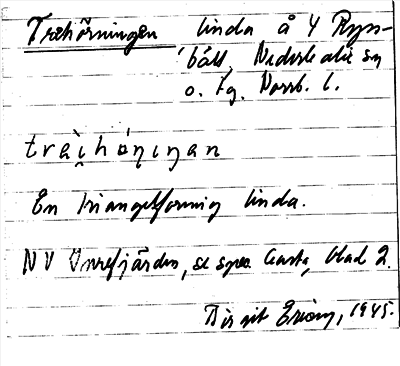 Trehörningen linda å Y Ryss-
bält, Nederkalix sn
o. tg. Norrb. l.
En triangelformig linda.
NV Inrefjärden, se spec. karta, blad 2.
Birgit Ericson, 1945.